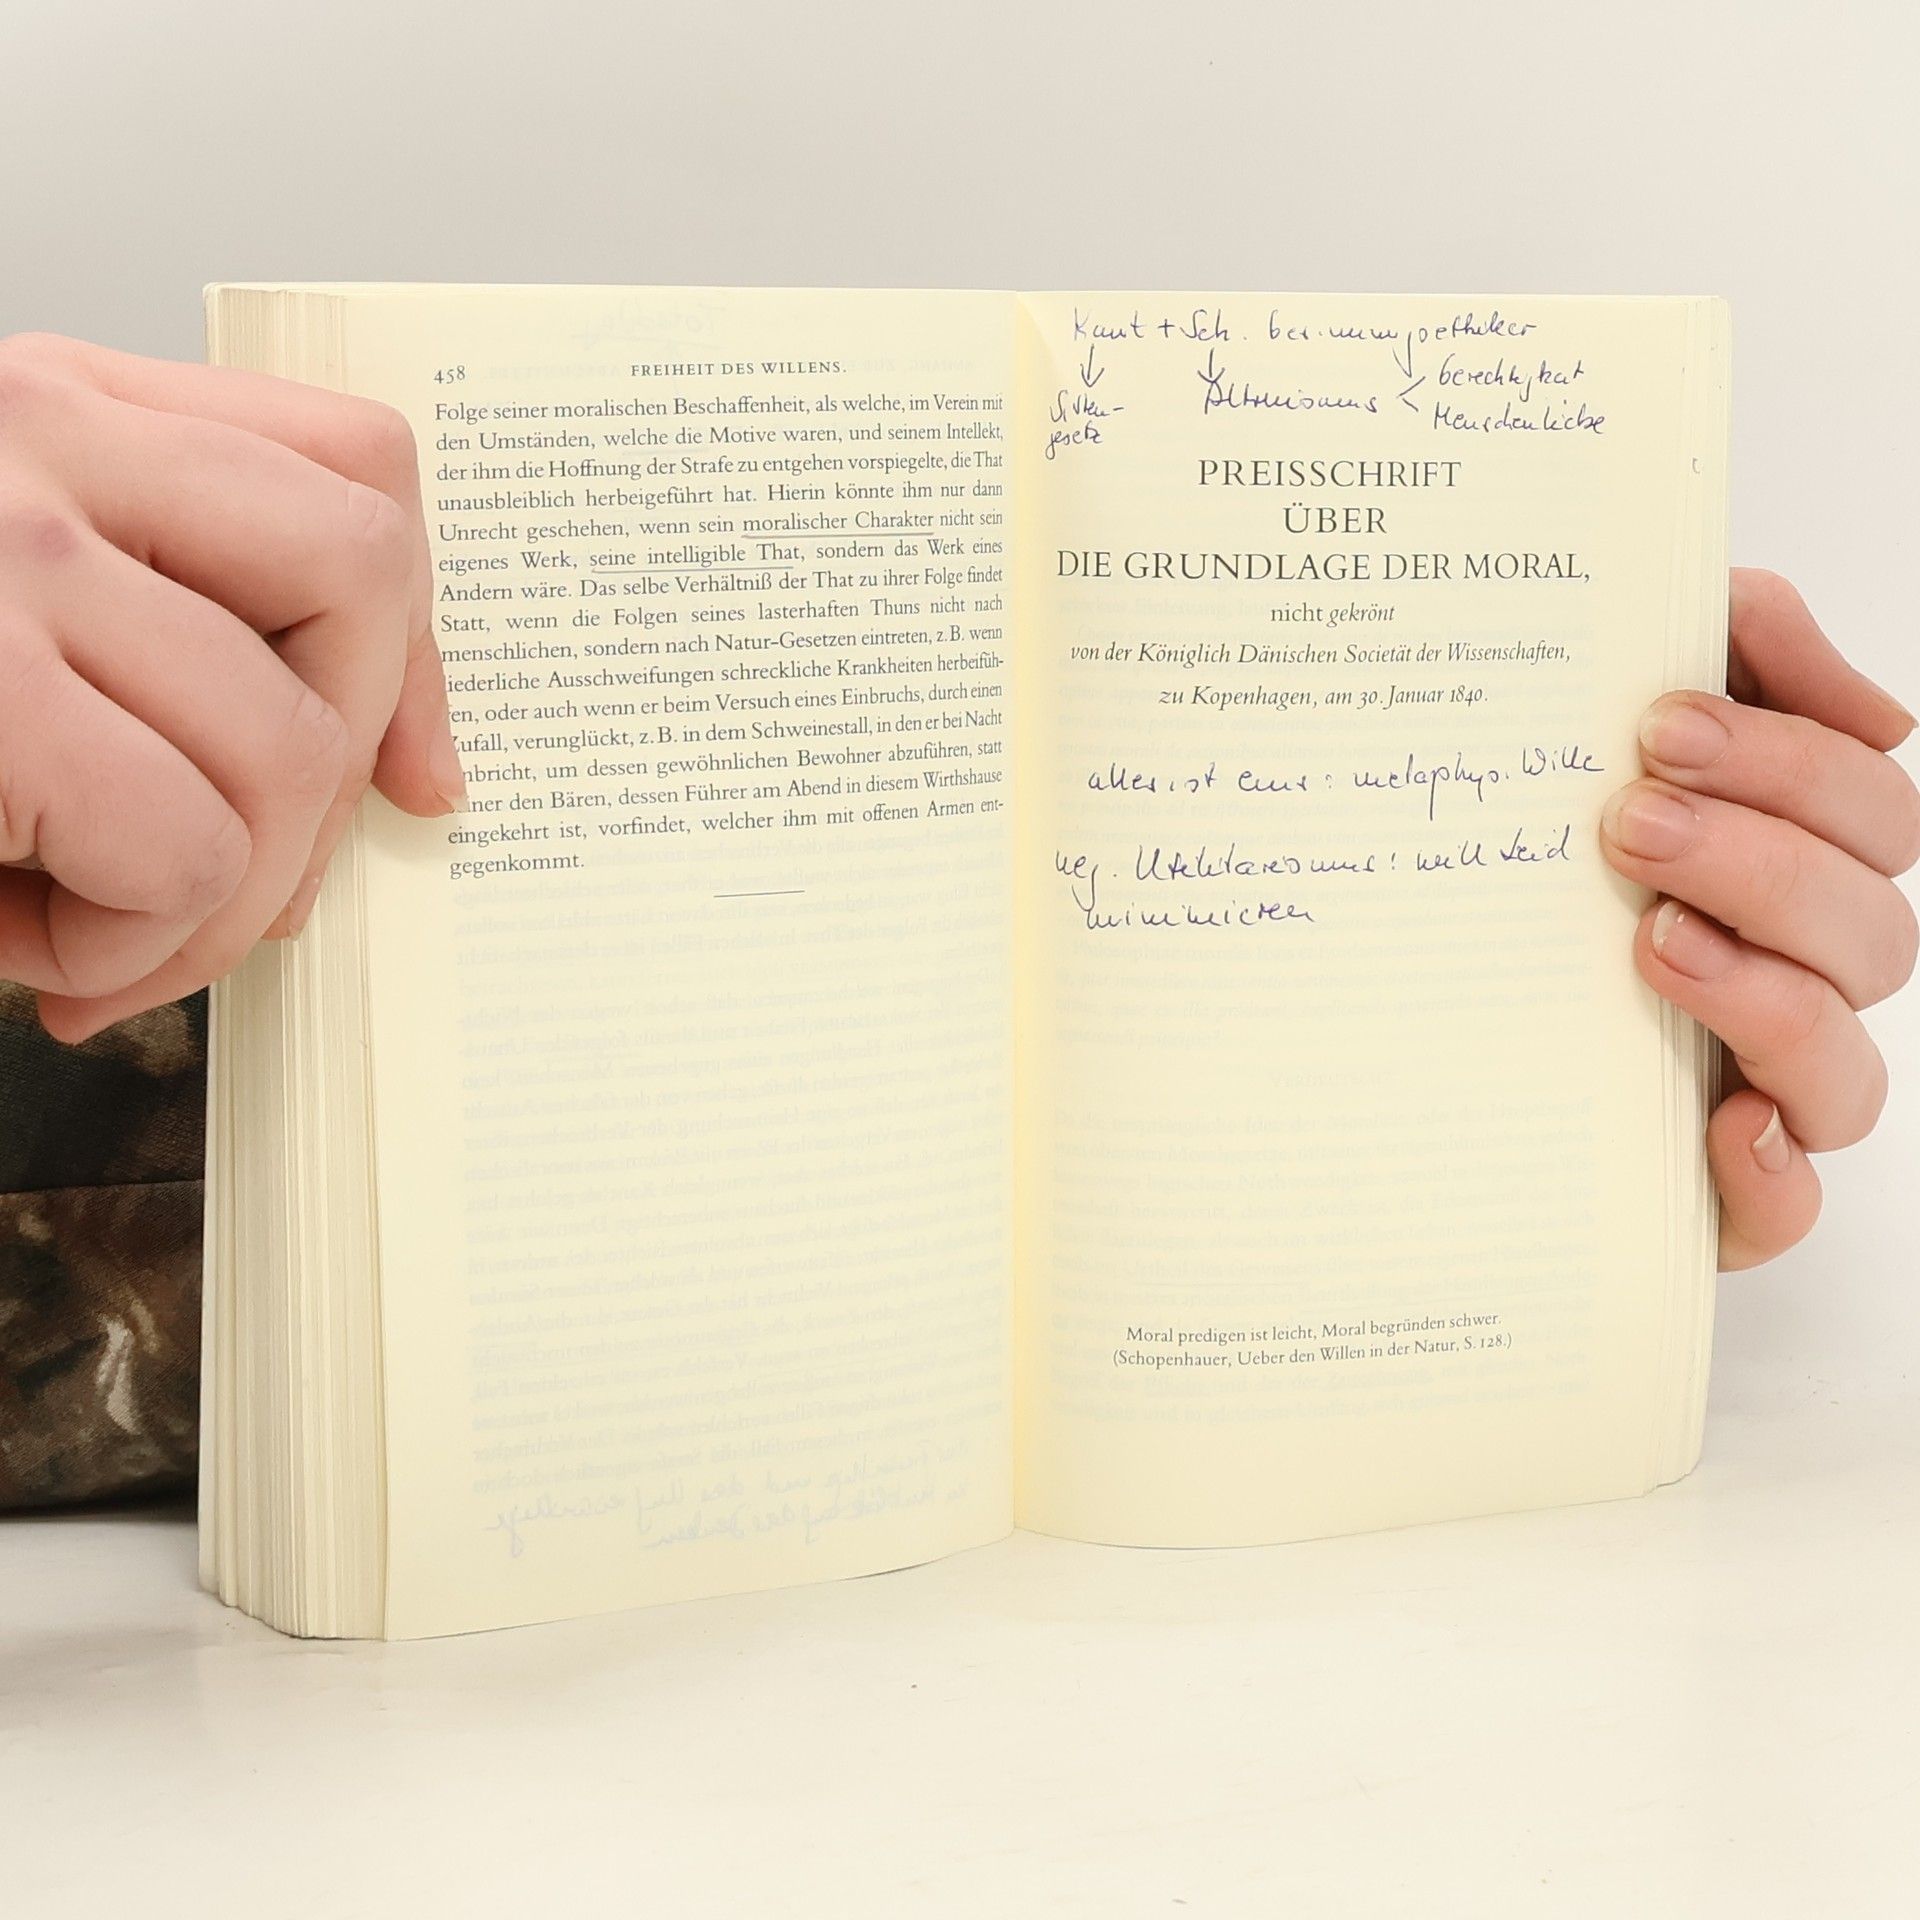 458 FREIHEIT DES WILLENS.
Folge seiner moralischen Beschaffenheit, als welche, im Verein mit
den Umständen, welche die Motive waren, und seinem Intellekt,
der ihm die Hoffnung der Strafe zu entgehen vorspiegelte, die That
unausbleiblich herbeigeführt hat. Hierin könnte ihm nur dann
Unrecht geschehen, wenn sein moralischer Charakter nicht sein
eigenes Werk, seine intelligible That, sondern das Werk eines
Andern wäre. Das selbe Verhältniß der That zu ihrer Folge findet
Statt, wenn die Folgen seines lasterhaften Thuns nicht nach
menschlichen, sondern nach Natur-Gesetzen eintreten, z.B. wenn
liederliche Ausschweifungen schreckliche Krankheiten herbeifüh-
en, oder auch wenn er beim Versuch eines Einbruchs, durch einen
Zufall, verunglückt, z.B. in dem Schweinestall, in den er bei Nacht
nbricht, um dessen gewöhnlichen Bewohner abzuführen, statt
einer den Bären, dessen Führer am Abend in diesem Wirthshause
eingekehrt ist, vorfindet, welcher ihm mit offenen Armen ent-
gegenkommt.
Kant + Sch.
Sitten-
gesetz
Altruismus
Menschenliebe
PREISSCHRIFT
ÜBER
DIE GRUNDLAGE DER MORAL,
nicht gekrönt
von der Königlich Dänischen Societät der Wissenschaften,
zu Kopenhagen, am 30. Januar 1840.
alles ist eins: metaphys. Wille
neg. Utilitarismus: will Leid
minimieren
Moral predigen ist leicht, Moral begründen schwer.
(Schopenhauer, Ueber den Willen in der Natur, S. 128.)